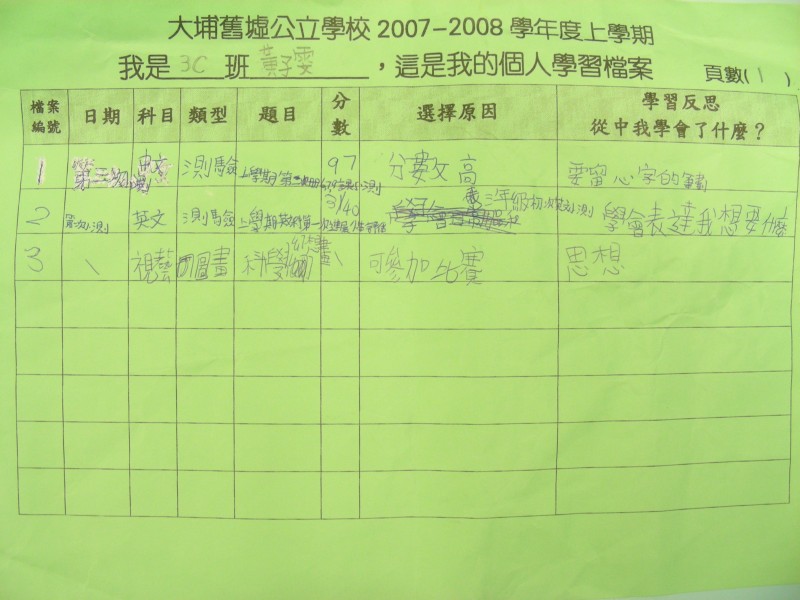 大埔舊墟公立學校 2007-2008 學年度上學期
我是 3C 班 黃子雯 ，這是我的個人學習檔案 頁數( 1 )
檔案編號 日期 科目 類型 題目 分數 選擇原因 學習反思 從中我學會了什麼？
1 第三次小測 中文 測驗 上學期第 97 分數改高 要留心字的筆劃
2 第一次小測 英文 測驗 上學期英文科第一次 /40 三年級初次英文小測 學會表達我想要什麼
3 \ 視藝 圖畫 科學 幻想畫 \ 可參加比賽 思想